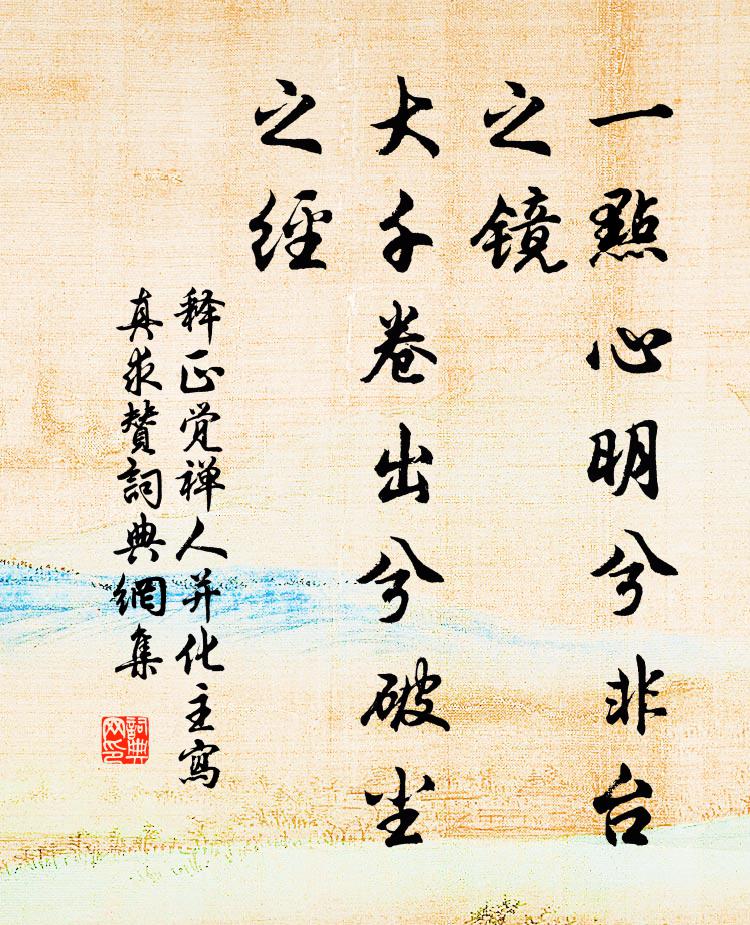 一點心明兮非台
之镜
大千卷出兮破尘
之經
释正觉禅人并化主寫
真求赞詞典網集
詞典
网印